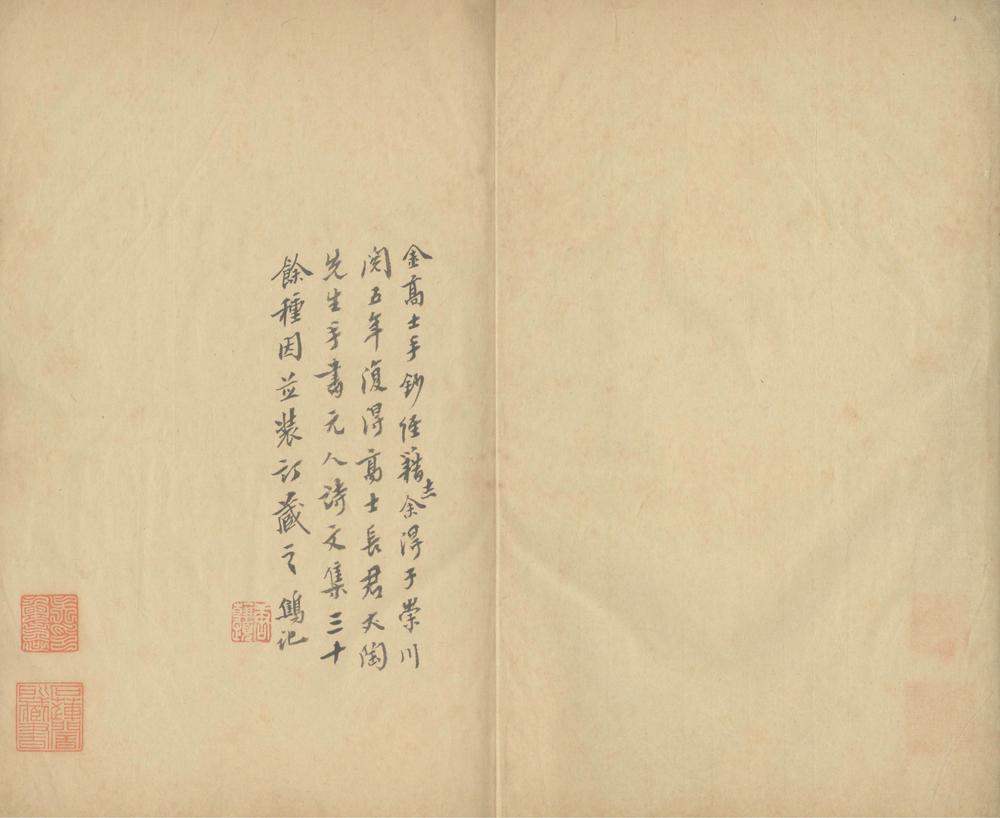 金高士手鈔經籍志余得于崇川
閱五年復得高士長君亢陶
先生手書元人詩文集三十
餘種因並裝訂藏之 鴻記